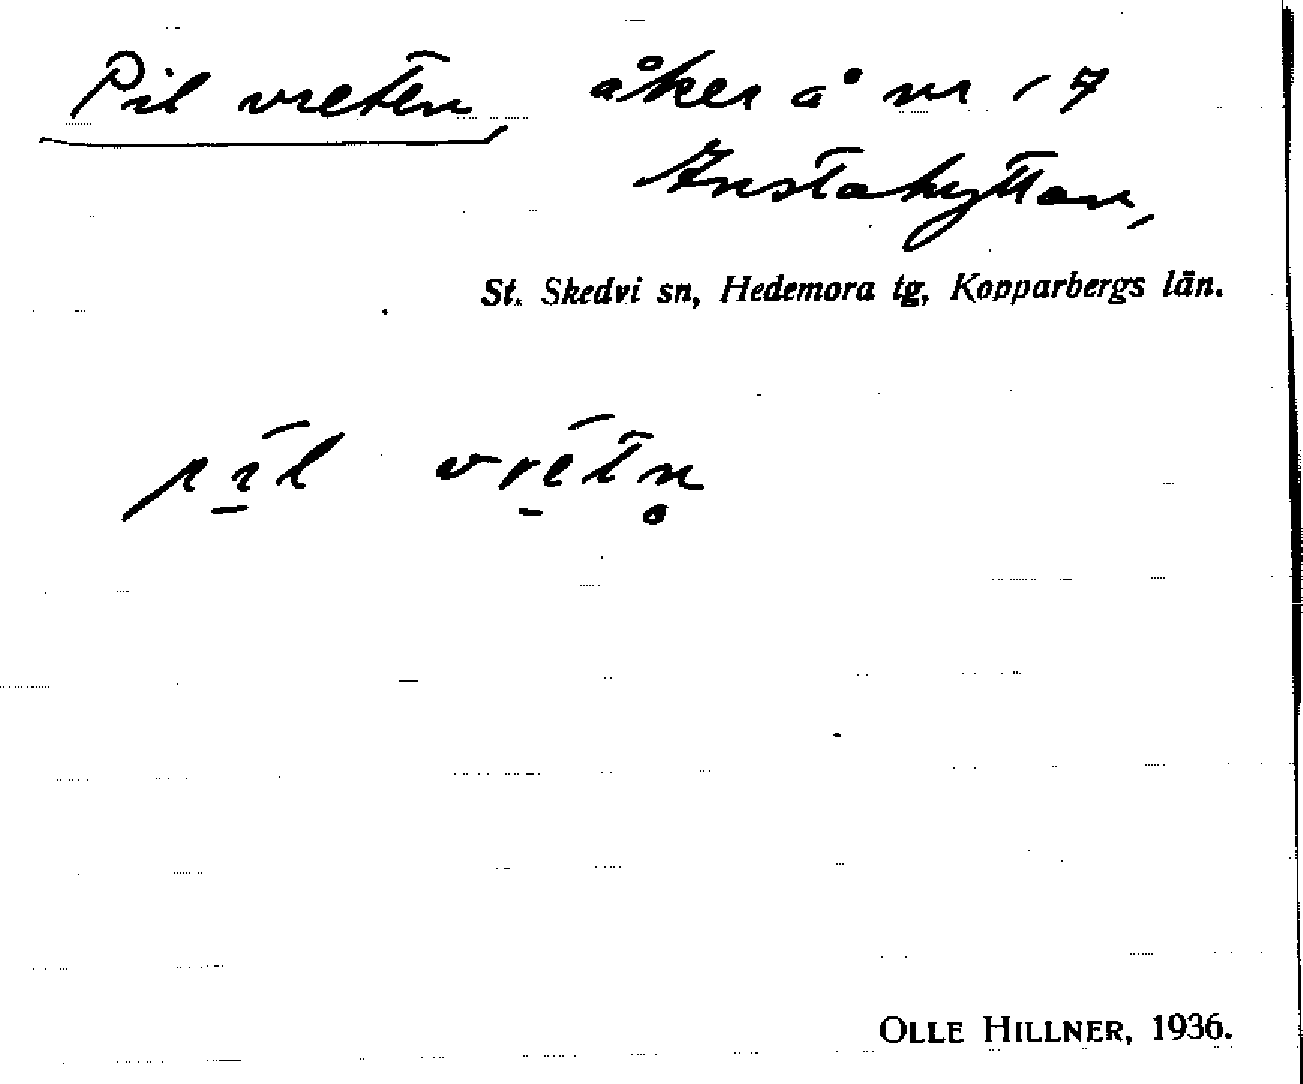 Pilvreten, åker å nr 17
Instahyttan,
St. Skedvi sn, Hedemora tg, Kopparbergs län.
pīl vrētn̥
OLLE HILLNER, 1936.